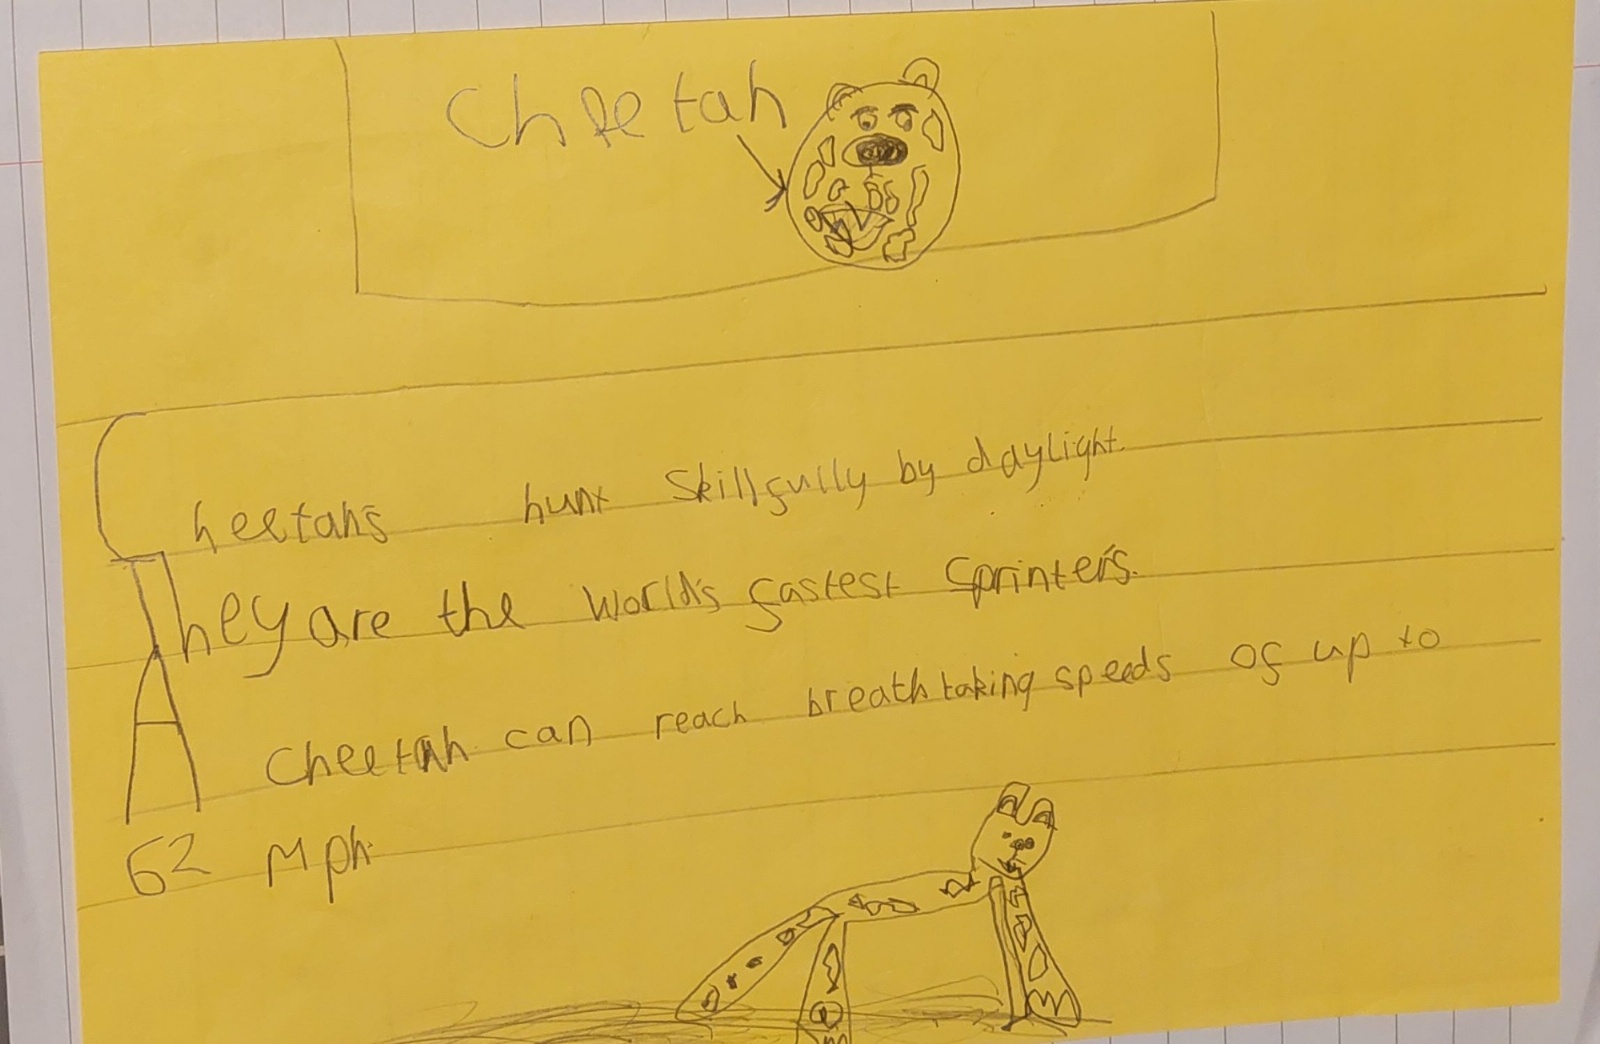 Cheetah
Cheetahs hunt skillfully by daylight.
They are the world's fastest sprinters.
A cheetah can reach breathtaking speeds of up to
62 mph.